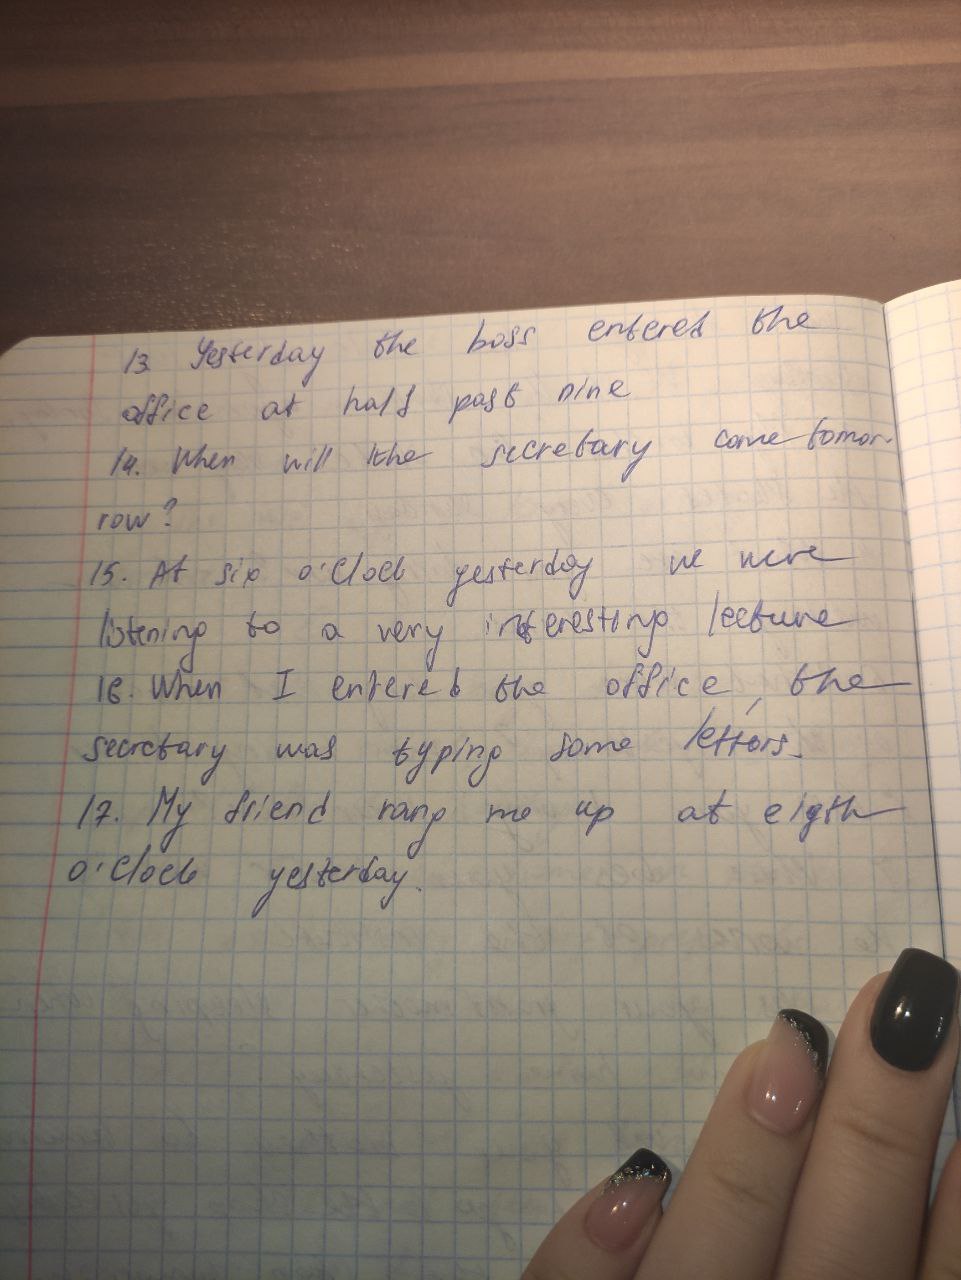 13. Yesterday the boss entered the
office at half past nine
14. When will the secretary come tomor-
row?
15. At six o'Clock yesterday we were
listening to a very interesting lecture
16. When I entered the office, the
secretary was typing some letters.
17. My friend rang me up at eigth
o'Clock yesterday.